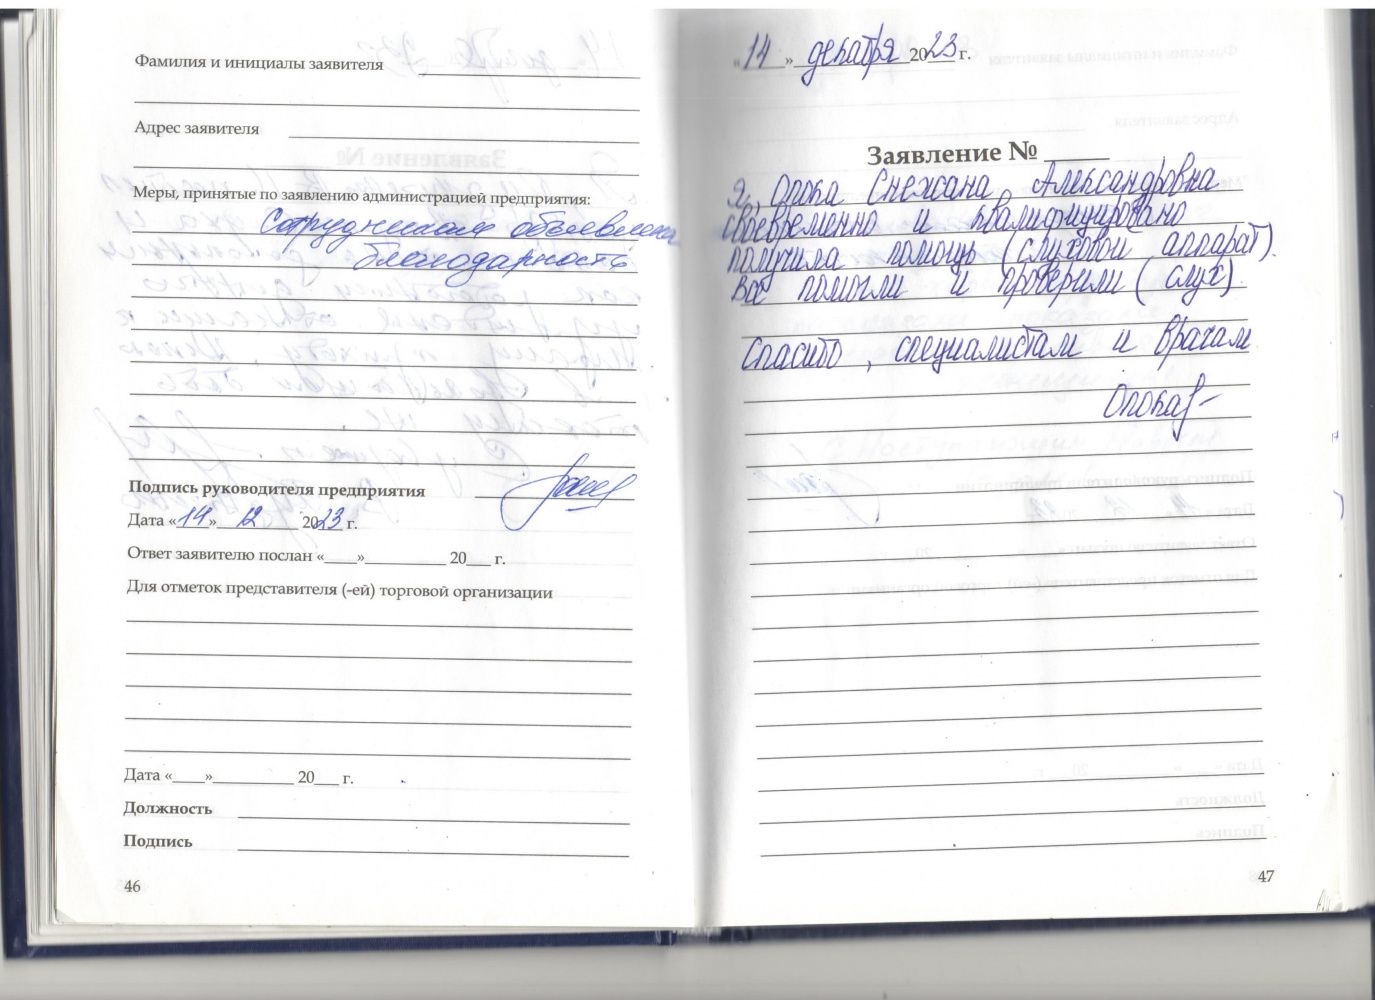 Фамилия и инициалы заявителя
Адрес заявителя
Меры, принятые по заявлению администрацией предприятия:
Сотрудникам объявлена
благодарность
Подпись руководителя предприятия
Дата «14» 12 2023 г.
Ответ заявителю послан «____»__________ 20___ г.
Для отметок представителя (-ей) торговой организации
Дата «____»__________ 20___ г.
Должность
Подпись
46
«14» декабря 2023 г.
Заявление № _____
Я, Опока Снежана Александровна
своевременно и квалифицировано
получила помощь (слуховой аппарат).
Все помогли и проверили (слух).
Спасибо, специалистам и врачам.
Опока
47